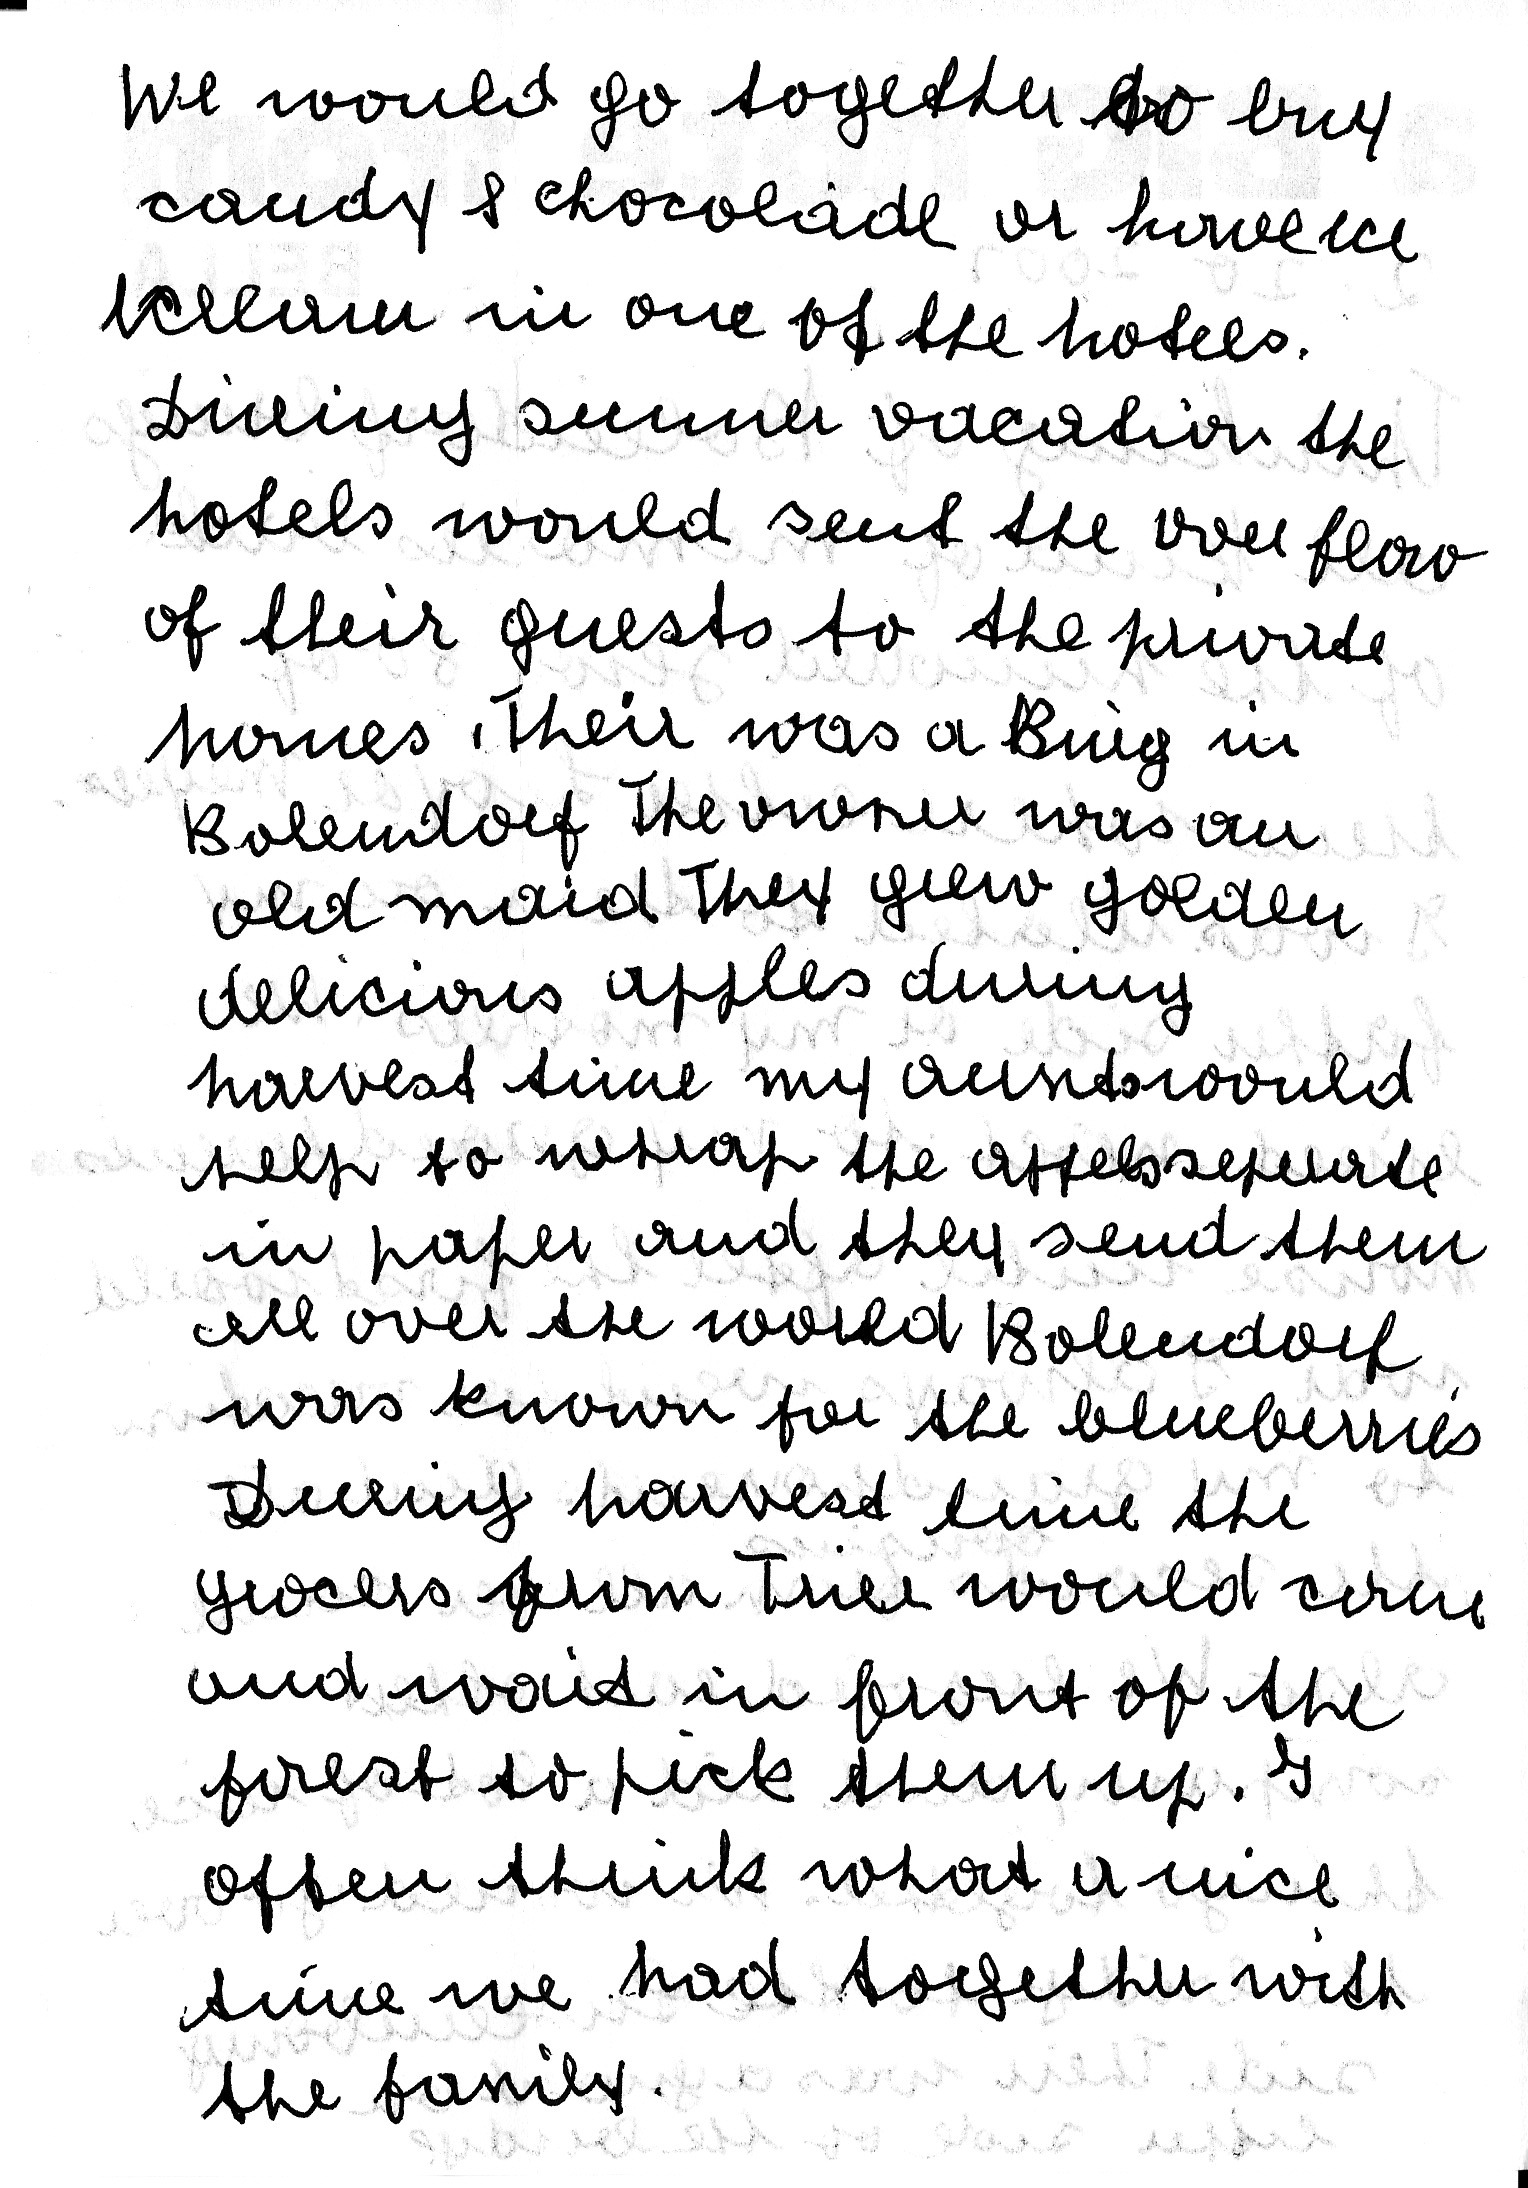 We would go together to buy
candy & chocolade or have ice
cream in one of the hotels.
During summer vacation the
hotels would sent the over flow
of their guests to the private
homes. Their was a Burg in
Bolendorf The owner was an
old maid They grew golden
delicious apples during
harvest time my aunts would
help to whrap the appels seperate
in paper and they send them
all over the world Bolendorf
was known for the blueberries
During harvest time the
grocers from Trier would come
and wait in front of the
forest to pick them up. I
often think what a nice
time we had together with
the family.